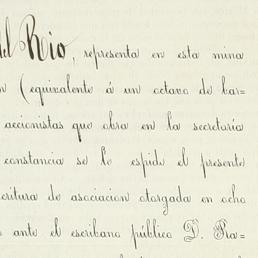 del Rio, representa en esta mina
n (equivalente á un octavo de bar=
accionistas que obra en la secretaría
constancia se le espide el presente
critura de asociacion otorgada en ocho
s ante el escribano público D. Ra=